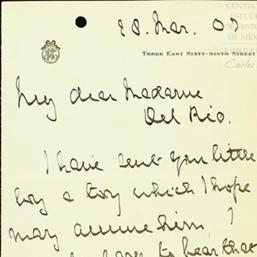 CENTR
DE ESTUD
DE HISTOR
DE MEX
Carlos
28. Mar. 07
THREE EAST SIXTY-NINTH STREET
My dear Madame
Del Rio.
I have sent you little
boy a toy which I hope
may amuse him. I
to hear that